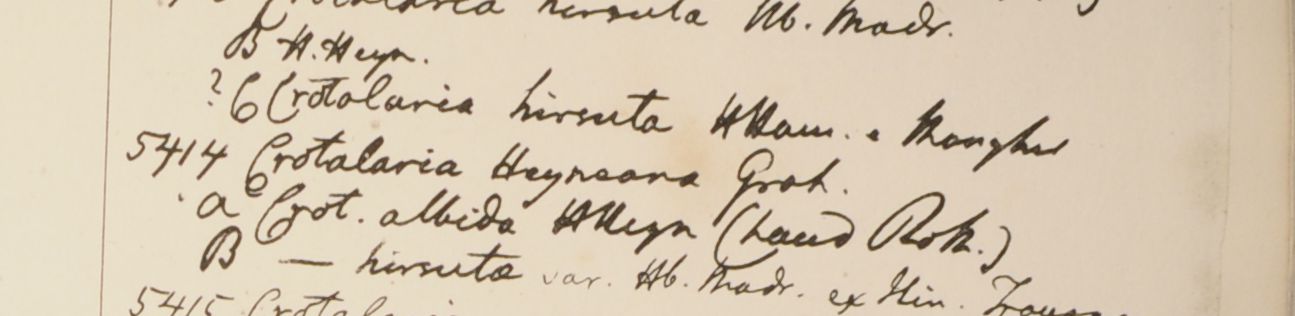 Crotalaria hirsuta Hb. Madr.
B H. Heyn.
? C Crotalaria hirsuta HHam. e Monghir
5414 Crotalaria Heyneana Grah.
a Crot. albida HHeyn (haud Roth.)
B — hirsuta var. Hb. Madr. ex Hin.
5415 Crotalaria